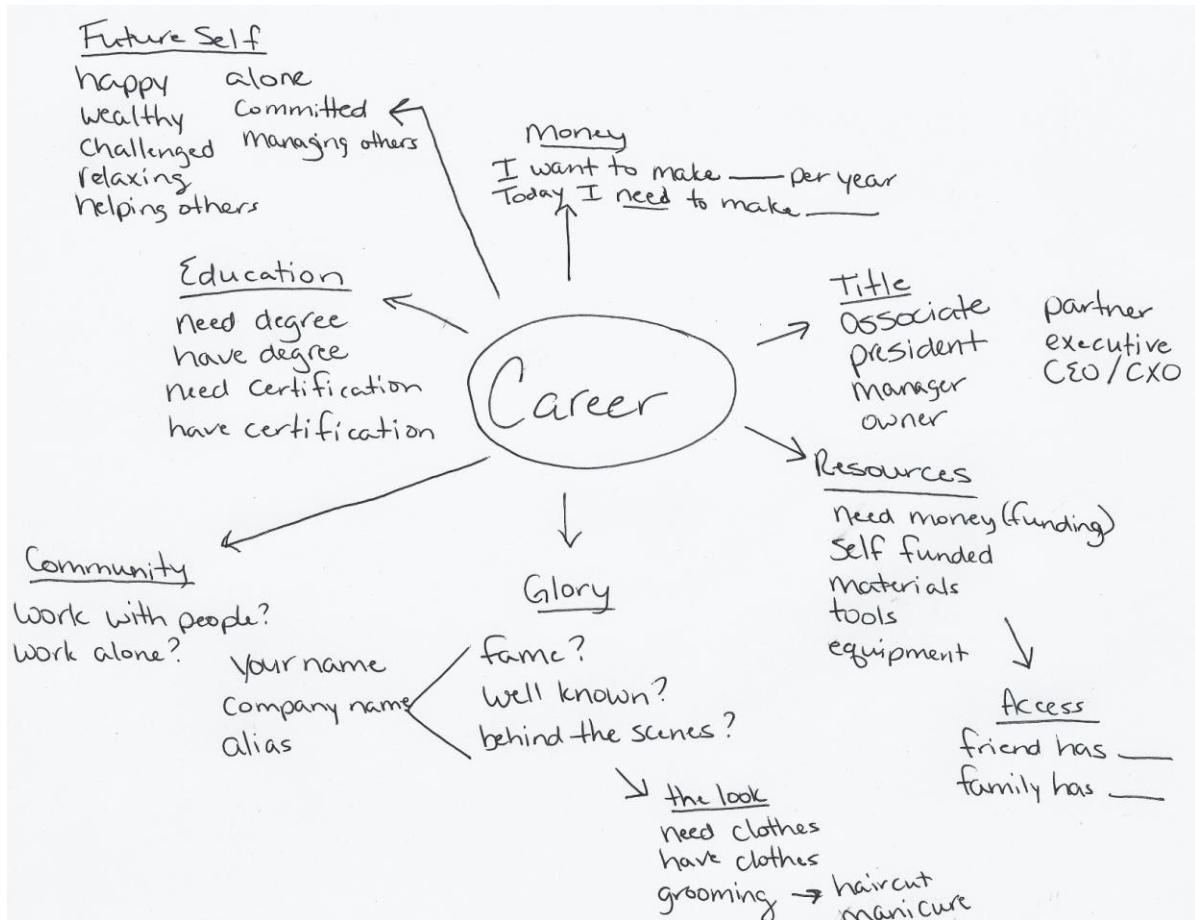 Future Self
happy alone
wealthy committed
challenged managing others
relaxing
helping others
Money
I want to make ___ per year
Today I need to make ___
Education
need degree
have degree
need certification
have certification
Career
Title
associate partner
president executive
manager CEO/CXO
owner
Resources
need money (funding)
self funded
materials
tools
equipment
Access
friend has ___
family has ___
Community
work with people?
work alone?
Glory
fame?
well known?
behind the scenes?
your name
company name
alias
the look
need clothes
have clothes
grooming → haircut
manicure